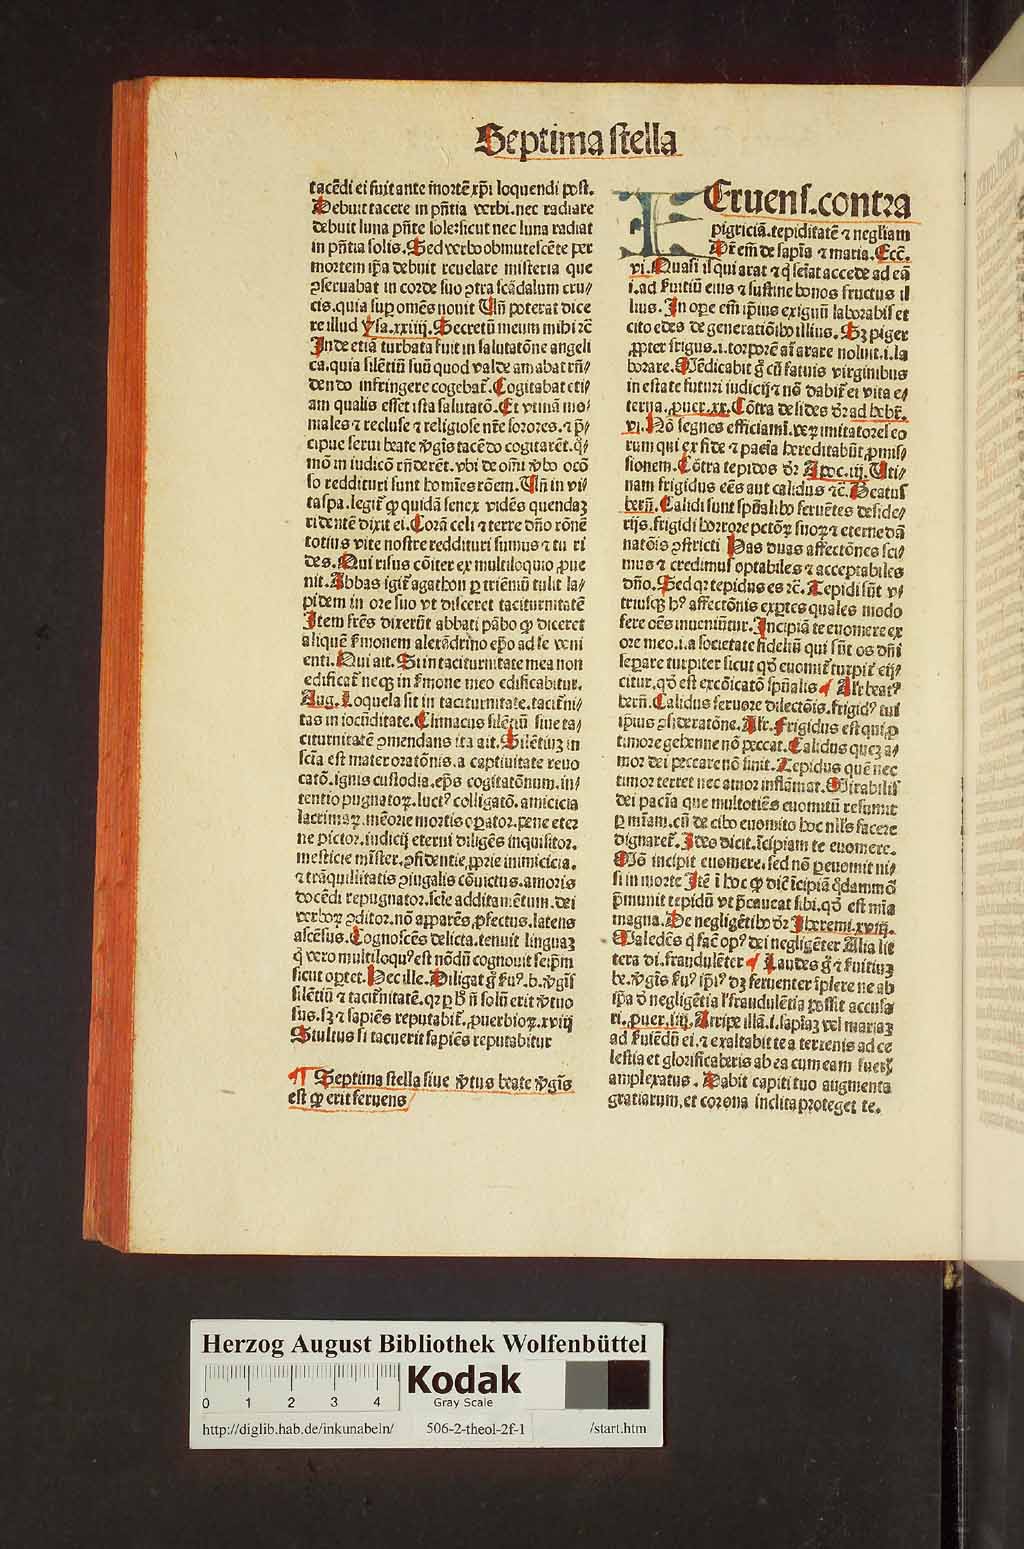 Septima stella
tacēdi ei fuit ante m̄ortē xp̄i loquendi post.
Debuit tacere in pn̄tia verbi. nec radiare
debuit luna pn̄te sole: sicut nec luna radiat
in pn̄tia solis. Sed verbo obmutescēte per
mortem ip̄a debuit reuelare misteria que
ꝯseruabat in corde suo ꝯtra scādalum cru/
cis. quia sup omēs nouit Vn̄ poterat dice
re illud ysa. xxiiij. Secretū meum mihi ⁊c̄
Inde etiā turbata fuit in salutatōne angeli
ca. quia silētiū suū quod valde amabat rn̄/
dendo infringere cogebat᷑. Cogitabat eti/
am qualis esset ista salutatō. Et vtinā mo/
niales ⁊ recluse ⁊ religiose nr̄e sorores. ⁊ p̄/
cipue serui beate v̓gīs tacēdo cogitarēt. q̄/
mō in iudicō rn̄derēt. vbi de om̄i v̓bo ocō
so reddituri sunt homīes rōem. Vn̄ in vi/
taspa. legit᷑ ꝙ quidā senex vidēs quendaꝫ
ridentē dixit ei. Corā celi ⁊ terre dn̄o rōnē
totius vite nostre reddituri sumus ⁊ tu ri
des. Qui risus cōiter ex multiloquio ꝓue
nit. Abbas igit᷑ agathon ꝑ triēniū tulit la/
pidem in ore suo vt disceret taciturnitatē
Item frēs dixerūt abbati pābo ꝙ diceret
aliquē s̓monem alexādrīno ep̄o ad se veni
enti. Qui ait. Si in taciturnitate mea non
edificat᷑ neqꝫ in s̓mone meo edificabitur.
Aug. Loquela sit in taciturnitate. tacit̓ni/
tas in iocūditate. Climacus silētiū siue ta/
citurnitatē ꝯmendans ita ait. Silētiuꝫ in
scīa est mater oratōnis. a captiuitate reuo
catō. ignis custodia. ep̄s cogitatōnum. in/
tentio pugnatoꝝ. luctꝰ colligatō. amicicia
lacrimaꝝ. mēorie mortis oꝑator. pene eter
ne pictor. iudicij eterni diligēs inquisitor.
mesticie mīster. ꝯfidentie, ꝓprie inimicicia.
⁊ trāquillitatis ꝯiugalis cōuictus. amoris
docēdi repugnator. scīe additamētum. dei
verboꝝ ꝯditor. nō apparēs, ꝓfectus. latens
ascēsus. Cognoscēs delicta. tenuit linguaꝫ
q̄ vero multiloquꝰ est nōdū cognouit seip̄m
sicut oꝑtet. Hec ille. Diligat g̊ s̓uꝰ. b. v̓gīs
silētiū ⁊ tacit̓nitatē. qꝛ ꝑ hͦ n̄ solū erit v̓tuo
sus. sꝫ ⁊ sapiēs reputabit᷑. ꝓuerbioꝝ. xviij
Stultus si tacuerit sapiēs reputabitur
¶ Septima stella siue v̓tus beate v̓gīs
est ꝙ erit feruens
FEruens. contra
pigriciā. tepiditatē ⁊ negliam
Dr̄ em̄ de sapīa ⁊ maria. Ecc̄.
vi. Quasi is qui arat ⁊ q̄ seīat accede ad eā
i. ad s̓uitiū eius ⁊ sustine bonos fructus il
lius. In oꝑe em̄ ip̄ius exiguū laborabis et
cito edes de generatiōibꝰ illius. Sꝫ piger
ꝓpter frigus. i. torporē ai̅ arare noluit. i. la
borare. Mēdicabit g̊ cū fatuis virginibus
in estate futuri iudicij ⁊ nō dabit᷑ ei vita e/
terna, ꝓuer. xx. Cōtra desides dr̄ ad hebr̄.
vi. Nō segnes efficiamī. veꝝ imitatores eo
rum qui ex fide ⁊ pacīa hereditabūt, ꝓmis/
sionem. Cōtra tepidos dr̄ Apoc. iij. Uti/
nam frigidus eēs aut calidus ⁊c̄. Beatus
bern̄. Calidi sunt spn̄alibꝰ feruētes deside/
rijs. frigidi horrore pctōꝝ suoꝝ ⁊ eterne dā
natōis ꝯstricti Has duas affectōnes sci/
mus ⁊ credimus optabiles ⁊ acceptabiles
dn̄o. Sed qꝛ tepidus es ⁊c̄. Tepidi sūt v/
triusqꝫ hꝰ affectōnis exꝑtes quales modo
fere oēs inueniūtur. Incipiā te euomere ex
ore meo. i. a societate fideliū qui sūt os dn̄i
seꝑare turpiter sicut qd̓ euomit᷑ turpit̓ eij/
citur. qd̓ est excōicatō spn̄alis ¶ Alr̄ beatꝰ
bern̄. Calidus feruore dilectōis. frigidꝰ tui
ipius ꝯsideratōne. Alr̄. Frigidus est qui, ꝓ
timore gehenne nō peccat. Calidus queꝫ a/
mor dei peccare nō sinit. Tepidus quē nec
timor terret nec amor inflāmat. Mirabilis
dei pacīa que multotiēs euomitū resumit
ꝑ mīam. cū de cibo euomito hoc nll's facere
dignaret᷑. Ideo dicit. īcipiam te euomere.
Mō incipit euomere. sed nō ꝑeuomit ni/
si in morte Itē ī hoc ꝙ dic̄ īcipiā q̄dammō
p̄munit tepidū vt p̄caueat sibi. qd̓ est mīa
magna. De negligētibꝰ dr̄ Iheremi. xviij.
Maledēs q̄ fac̄ opꝰ dei negligēter Alia lit
tera dī. fraudulēter ¶ Laudes g̊ ⁊ s̓uitiuꝫ
be. v̓gīs s̓uꝰ ip̄iꝰ dꝫ feruenter īplere ne ab
ip̄a d̓ negligētia l' fraudulētia possit accusa
ri. ꝓuer. iiij. Arripe illā. i. sapīaꝫ vel mariaꝫ
ad s̓uiēdū ei. ⁊ exaltabit te a terrenis ad ce
lestia et glorificaberis ab ea cum eam fueꝝ
amplexatus. Dabit capiti tuo augmenta
gratiarum. et corona inclita proteget te.
Herzog August Bibliothek Wolfenbüttel
0 1 2 3 4
Kodak
Gray Scale
http://diglib.hab.de/inkunabeln/ 506-2-theol-2f-1 /start.htm